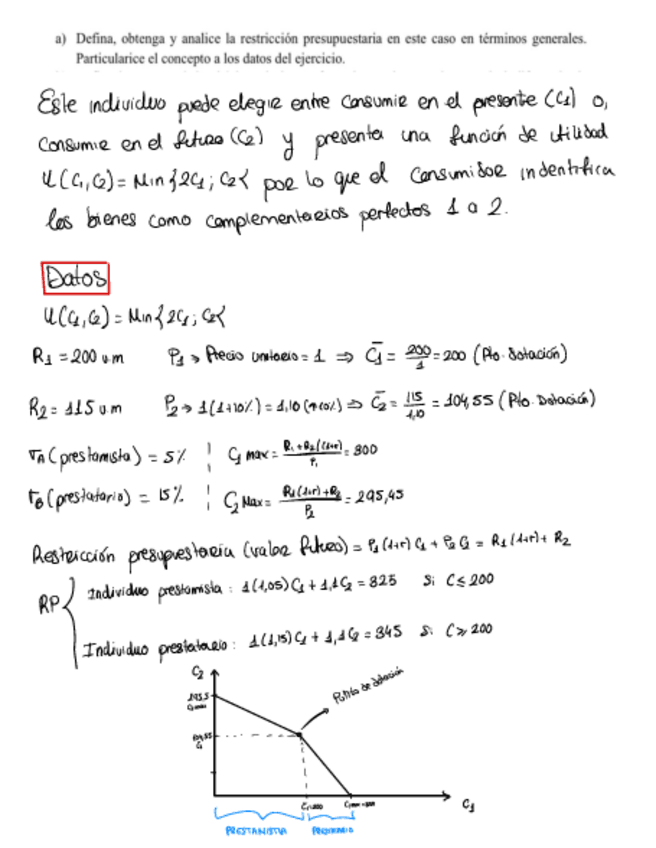 a) Defina, obtenga y analice la restricción presupuestaria en este caso en términos generales.
Particularice el concepto a los datos del ejercicio.
Este individuo puede elegir entre consumir en el presente (C1) o,
consumir en el futuro (C2) y presenta una función de utilidad
U(C1,C2) = Min{2C1; C2{ por lo que el consumidor indentifica
los bienes como complementarios perfectos 1 a 2.
Datos
U(C1,C2) = Min{2C1; C2{
R1 = 200 u.m P1 → Precio unitario = 1 ⇒ C̄1 = 200/1 = 200 (Pto. Dotación)
R2 = 115 u.m P2 → 1(1+10%) = 1,10 (↑10%) ⇒ C̄2 = 115/1,10 = 104,55 (Pto. Dotación)
rA (prestamista) = 5% C1 max = R1+R2/(1+r)/P1 = 300
rB (prestatario) = 15% C2 Max = R1(1+r)+R2/P2 = 295,45
Restricción presupuestaria (valor futuro) = P1(1+r)C1 + P2C2 = R1(1+r) + R2
RP { Individuo prestamista: 1(1,05)C1 + 1,1C2 = 325 Si C ≤ 200
Individuo prestatario: 1(1,15)C1 + 1,1C2 = 345 Si C ≥ 200
C2
Punto de dotación
295,5
C2max
104,55
C̄2
C1=200 C1max=300
C1
PRESTAMISTA